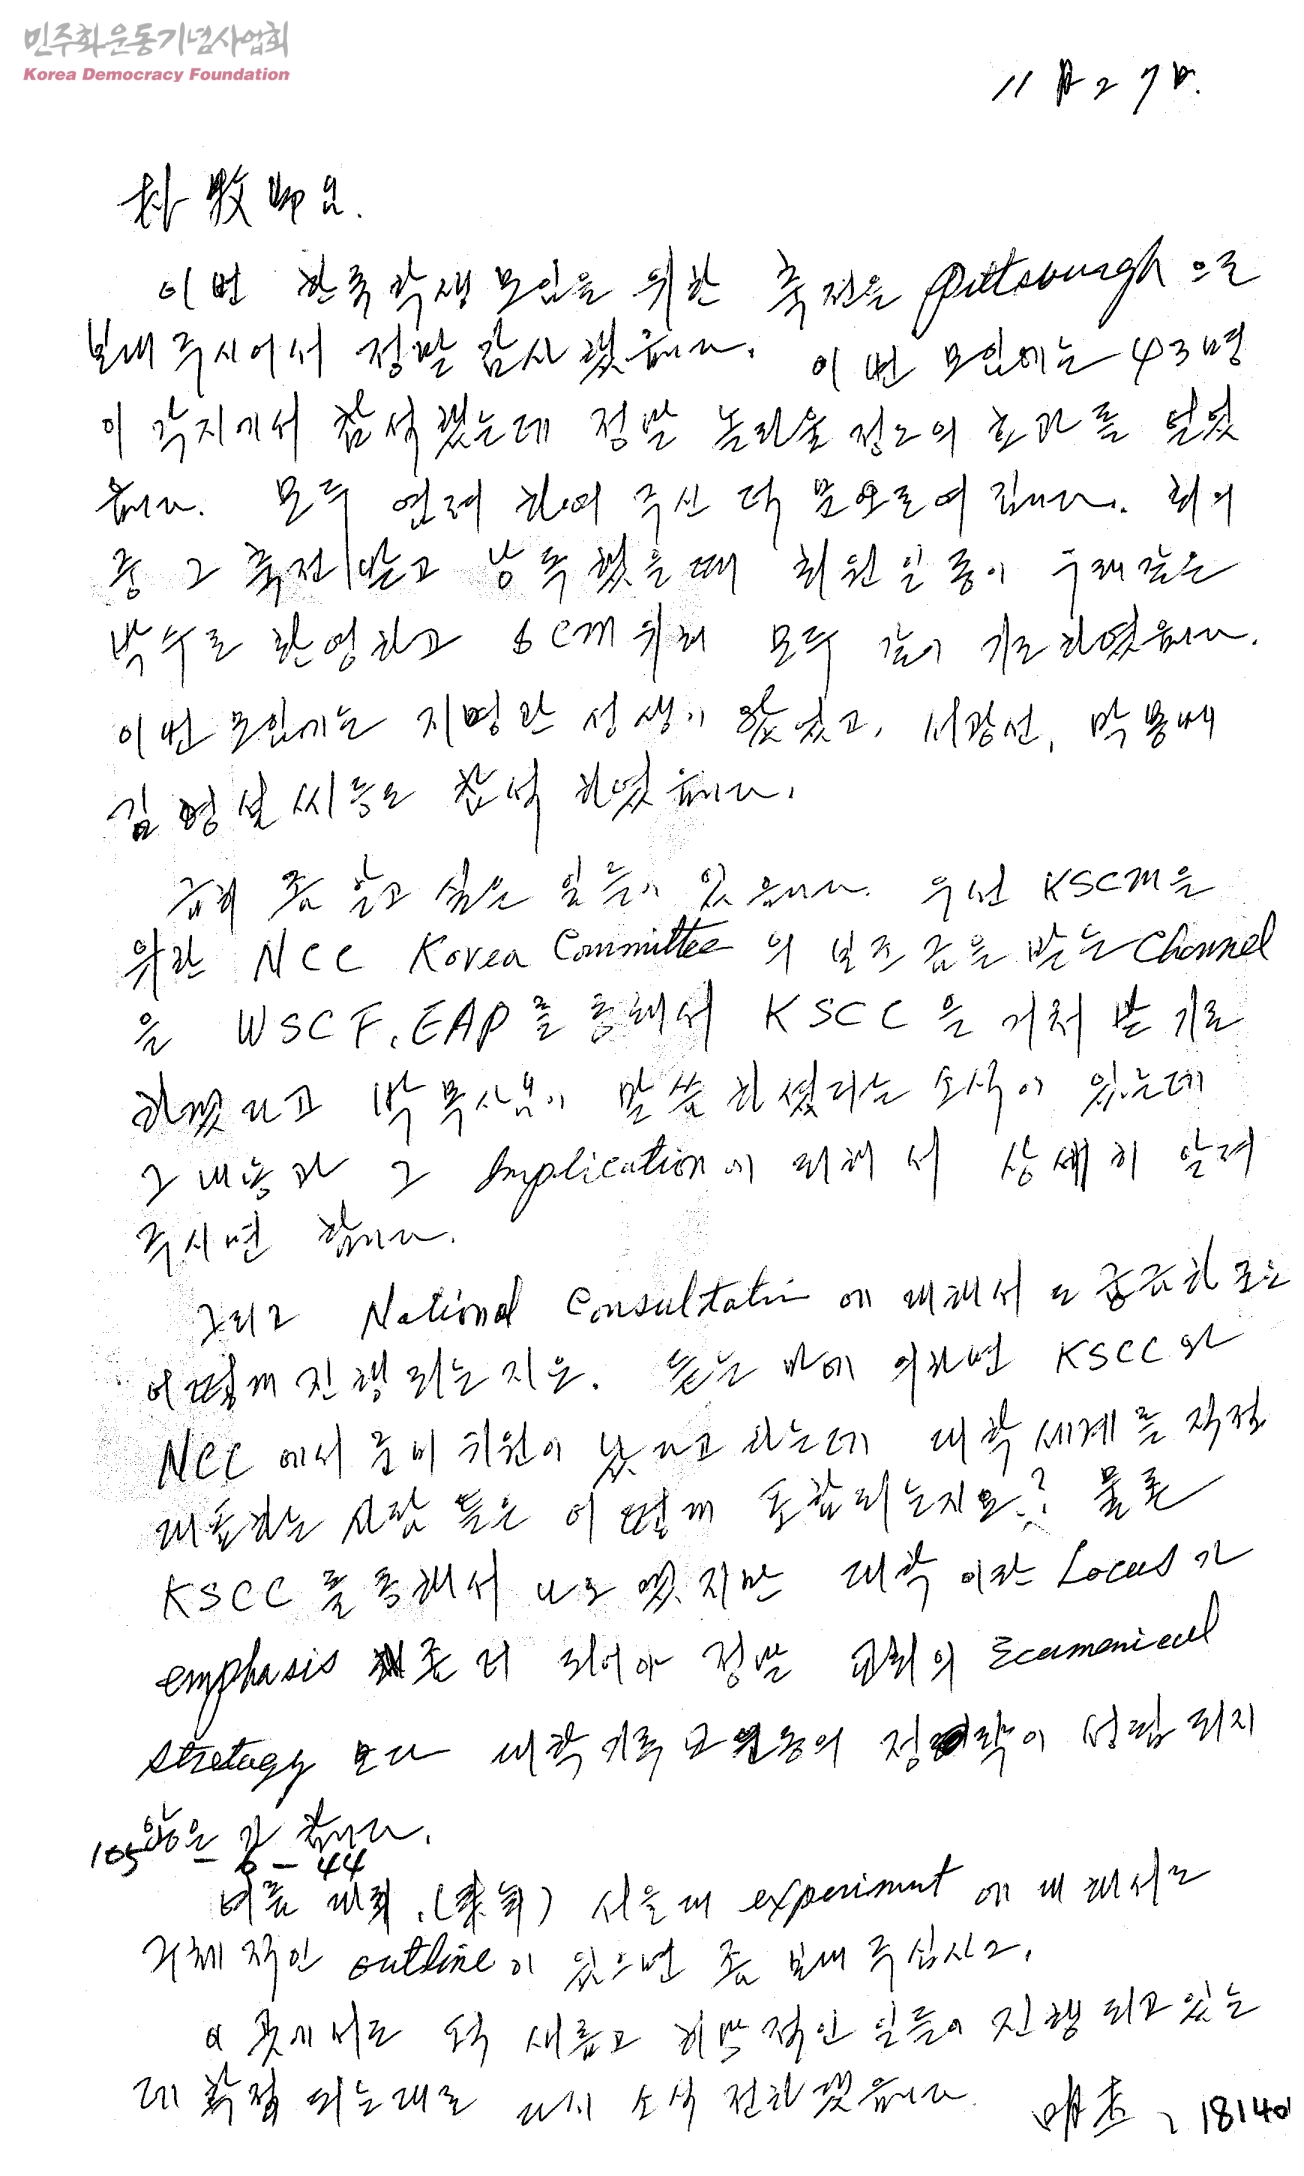 민주화운동기념사업회
Korea Democracy Foundation
11月27日.
朴牧師님.
이번 한국학생모임을 위한 축전을 Pittsburgh으로
보내주시어서 정말 감사했읍니다. 이번 모임에는 43명
이 각지에서 참석했는데 정말 놀라울 정도의 효과를 얻었
읍니다. 모두 염려하여 주신 덕분으로 여깁니다. 회의
중 그 축전 받고 낭독했을 때 회원일동이 우레같은
박수로 환영하고 SCM위해 모두 같이 기도하였읍니다.
이번 모임에는 지명관 선생이 왔었고, 서광선, 박봉배
김형석씨 등도 참석하였읍니다.
급히 좀 알고 싶은 일들이 있읍니다. 우선 KSCM을
위한 NCC Korea Committee의 보조금을 받는 Channel
을 WSCF, EAP를 통해서 KSCC을 거쳐 받기로
하였다고 박목사님이 말씀하셨다는 소식이 있는데
그 내용과 그 Implication에 대해서 상세히 알려
주시면 합니다.
그리고 National Consultation에 대해서도 궁금하군요
어떻게 진행되는지요. 듣는 바에 의하면 KSCC와
NCC에서 준비위원이 났다고 하는데 대학세계를 직접
대표하는 사람들은 어떻게 포함되는지요? 물론
KSCC를 통해서 나오겠지만 대학이란 Locus가
emphasis 좀 더 되어야 정말 교회의 Ecumenical
Strategy 보다 대학기독교운동의 정략이 성립되지
않은가 합니다.
105 - 6 - 44
여름 대회, 서울대 experiment에 대해서도
구체적인 outline이 있으면 좀 보내주십시오.
이곳에서도 퍽 새롭고 희망적인 일들이 진행되고 있는
데 확정되는대로 다시 소식 전하겠읍니다.
181401